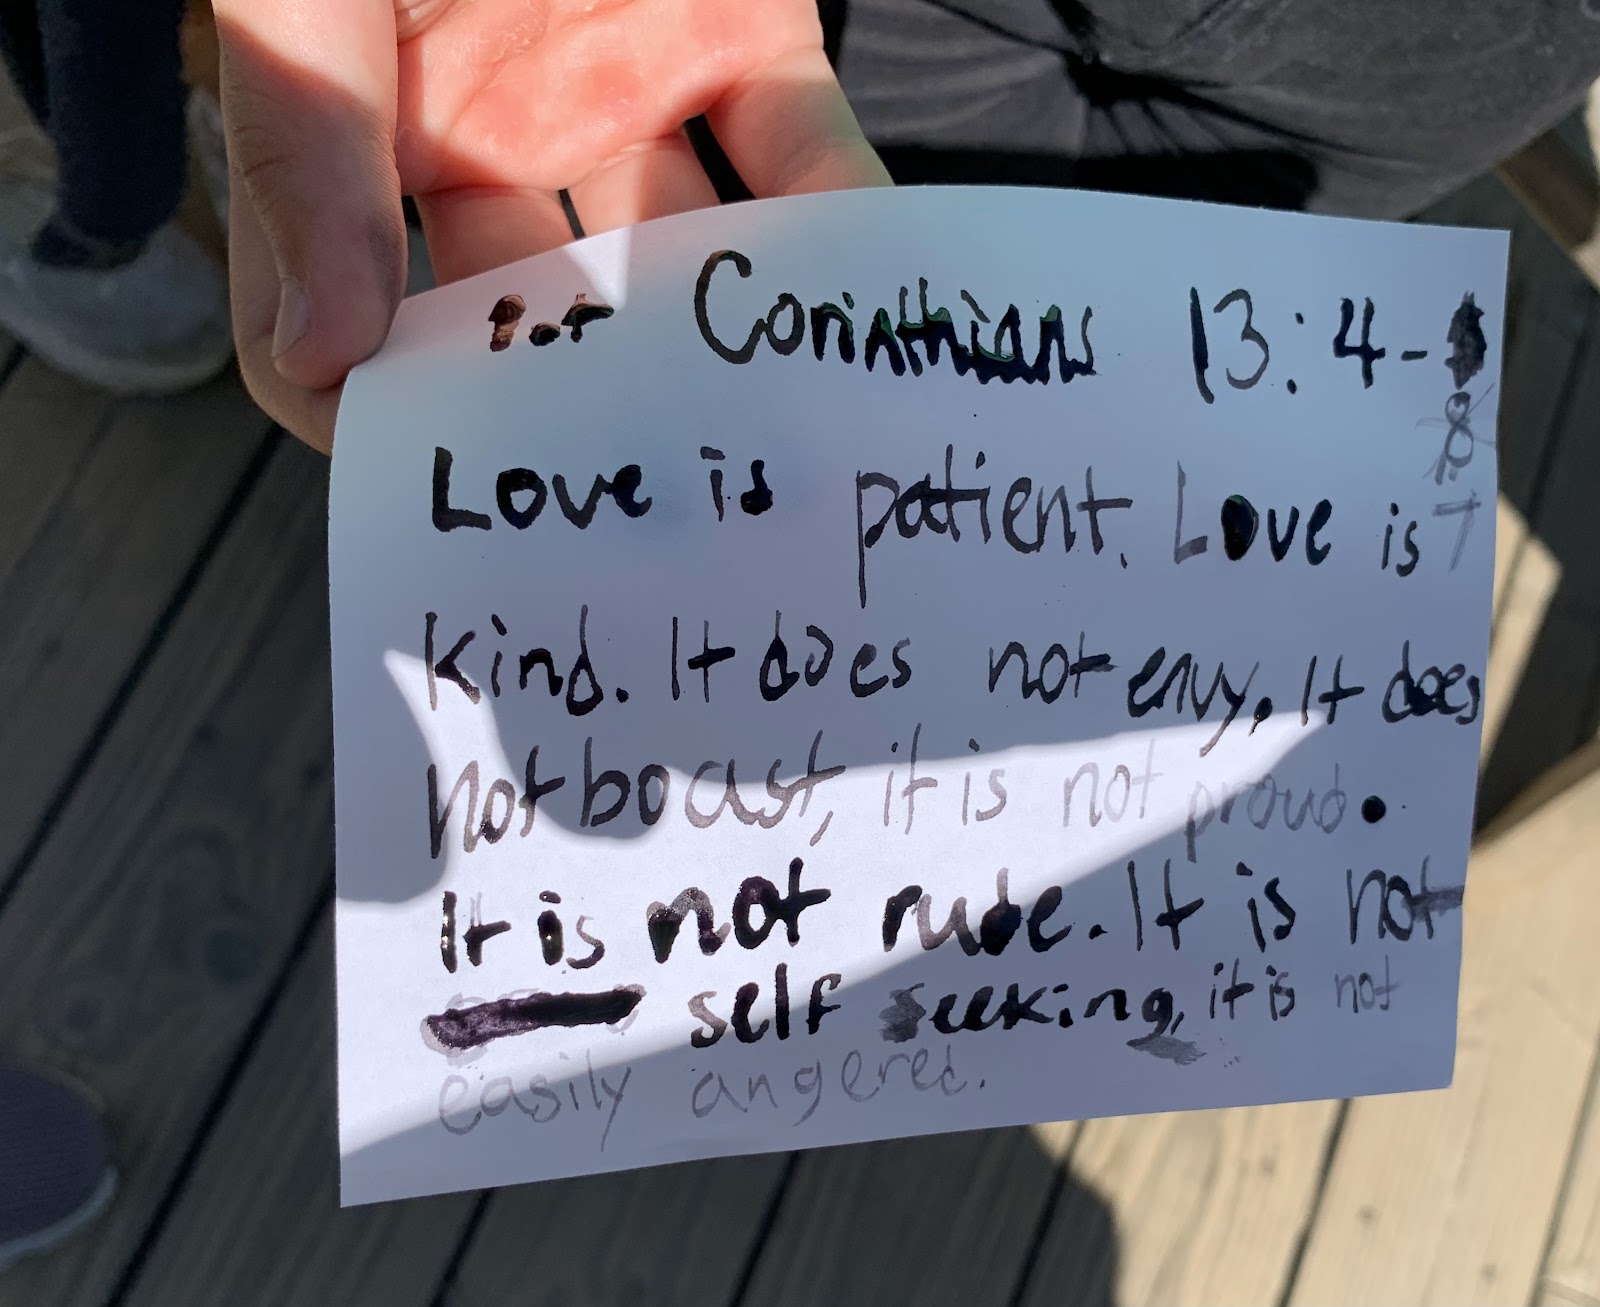 Corinthians 13:4-
Love is patient. Love is 7
kind. It does not envy. It does
not boast, it is not proud.
It is not rude. It is not
self seeking, it is not
easily angered.